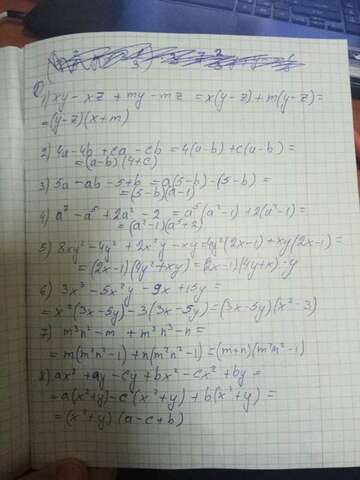 1) xy - xz + my - mz = x(y-z) + m(y-z) =
= (y-z)(x+m)
2) 4a - 4b + ca - cb = 4(a-b) + c(a-b) =
= (a-b)(4+c)
3) 5a - ab - 5 + b = a(5-b) - (5-b) =
= (5-b)(a-1)
4) a⁷ - a⁵ + 2a² - 2 = a⁵(a²-1) + 2(a²-1) =
= (a²-1)(a⁵+2)
5) 8xy² - 4y² + 2x²y - xy = 4y²(2x-1) + xy(2x-1) =
= (2x-1)(4y²+xy) = (2x-1)(4y+x)·y
6) 3x³ - 5x²y - 9x + 15y =
= x²(3x-5y) - 3(3x-5y) = (3x-5y)(x²-3)
7) m³n² - m + m²n³ - n =
= m(m²n²-1) + n(m²n²-1) = (m+n)(m²n²-1)
8) ax² + ay - cy + bx² - cx² + by =
= a(x²+y) - c(x²+y) + b(x²+y) =
= (x²+y)(a-c+b)